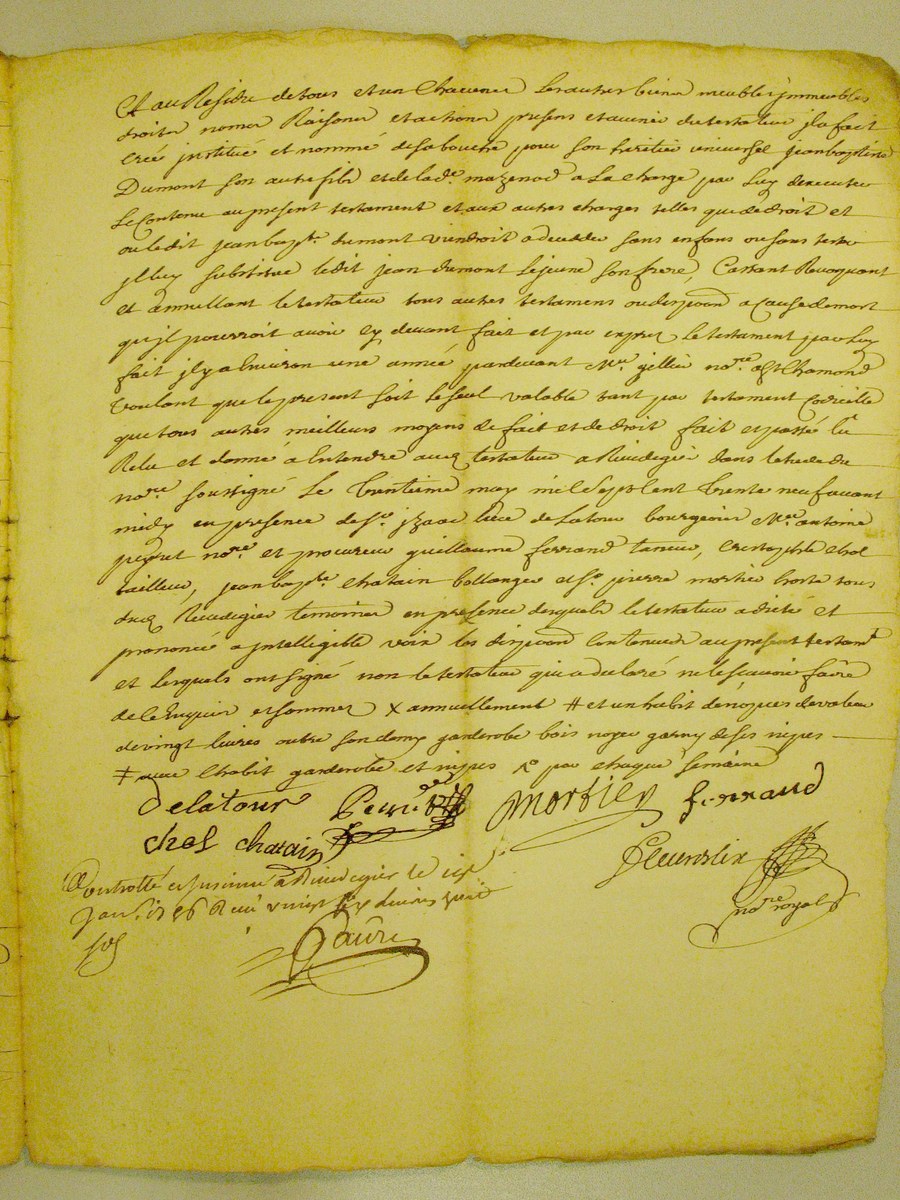 Et au Residu de tous et un Chacuns Les autres biens meubles jmmeubles
droits noms Raisons et actions presens et avenir du testateur jl a fait
créé jnstitué et nommé de sa bouche pour son heritier universel jean baptiste
Dumont son autre fils et de lad.e mazenod a La charge par Luy d'executer
Le Contenu au present testament et aux autres charges telles que de droit et
ou ledit jean bapt.e dumont viendroit a deceder sans enfans ou sans tester
jl luy substitue ledit jean dumont le jeune son frere, Cassant Revoquant
et annullant le testateur tous autres testamens ou dispōns a Cause de mort
qu'jl pourroit avoir Cy devant fait et par exprez Le testament par Luy
fait jl y a Environ une année pardevant M.re gillier no.re a S.t Chamond
Voulant que le present soit le seul valable tant par testament Codicille
que tous autres meilleurs moyens de fait et de droit fait et passé Lu
Relu et donné a Entendre aud. testateur a Rivedegier dans l'etude du
no.re soussigné Le trentieme may mil sept Cent trente neuf avant
midy en presence de S.r jzaac de Latour bourgeois M.re antoine
no.re et procureur guillaume ferrand taneur, chol
tailleur, jean bap.te Chatain bollanger et S.r pierre mortier hoste tous
dud. Rivedegier temoins en presence desquels le testateur a dicté et
prononcé a jntelligible voix les dispōns Contenues au present testam.t
et Lesquels ont signé non le testateur qui a declaré ne le scavoir faire
de ce Enquis et sommé X annuellement # et un habit de nopces de valeur
de vingt livres outre son demy garderobe bois noyer garny de ses nipes
‡ habit garderobe et nipes par chaque semaine
Delatour Mortier ferrand
chol chatain
no.re royal
Controllé et jnsinué a Rivedegier le
Faure